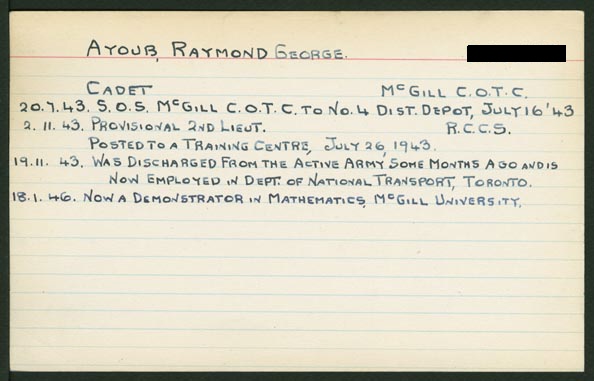 AYOUB, RAYMOND GEORGE.
CADET McGILL C.O.T.C.
20.7.43. S.O.S. McGILL C.O.T.C. TO NO. 4 DIST. DEPOT, JULY 16 '43
2. 11. 43. PROVISIONAL 2ND LIEUT. R.C.C.S.
POSTED TO A TRAINING CENTRE, JULY 26, 1943.
19.11. 43. WAS DISCHARGED FROM THE ACTIVE ARMY SOME MONTHS AGO AND IS
NOW EMPLOYED IN DEPT. OF NATIONAL TRANSPORT, TORONTO.
18.1. 46. NOW A DEMONSTRATOR IN MATHEMATICS, McGILL UNIVERSITY.